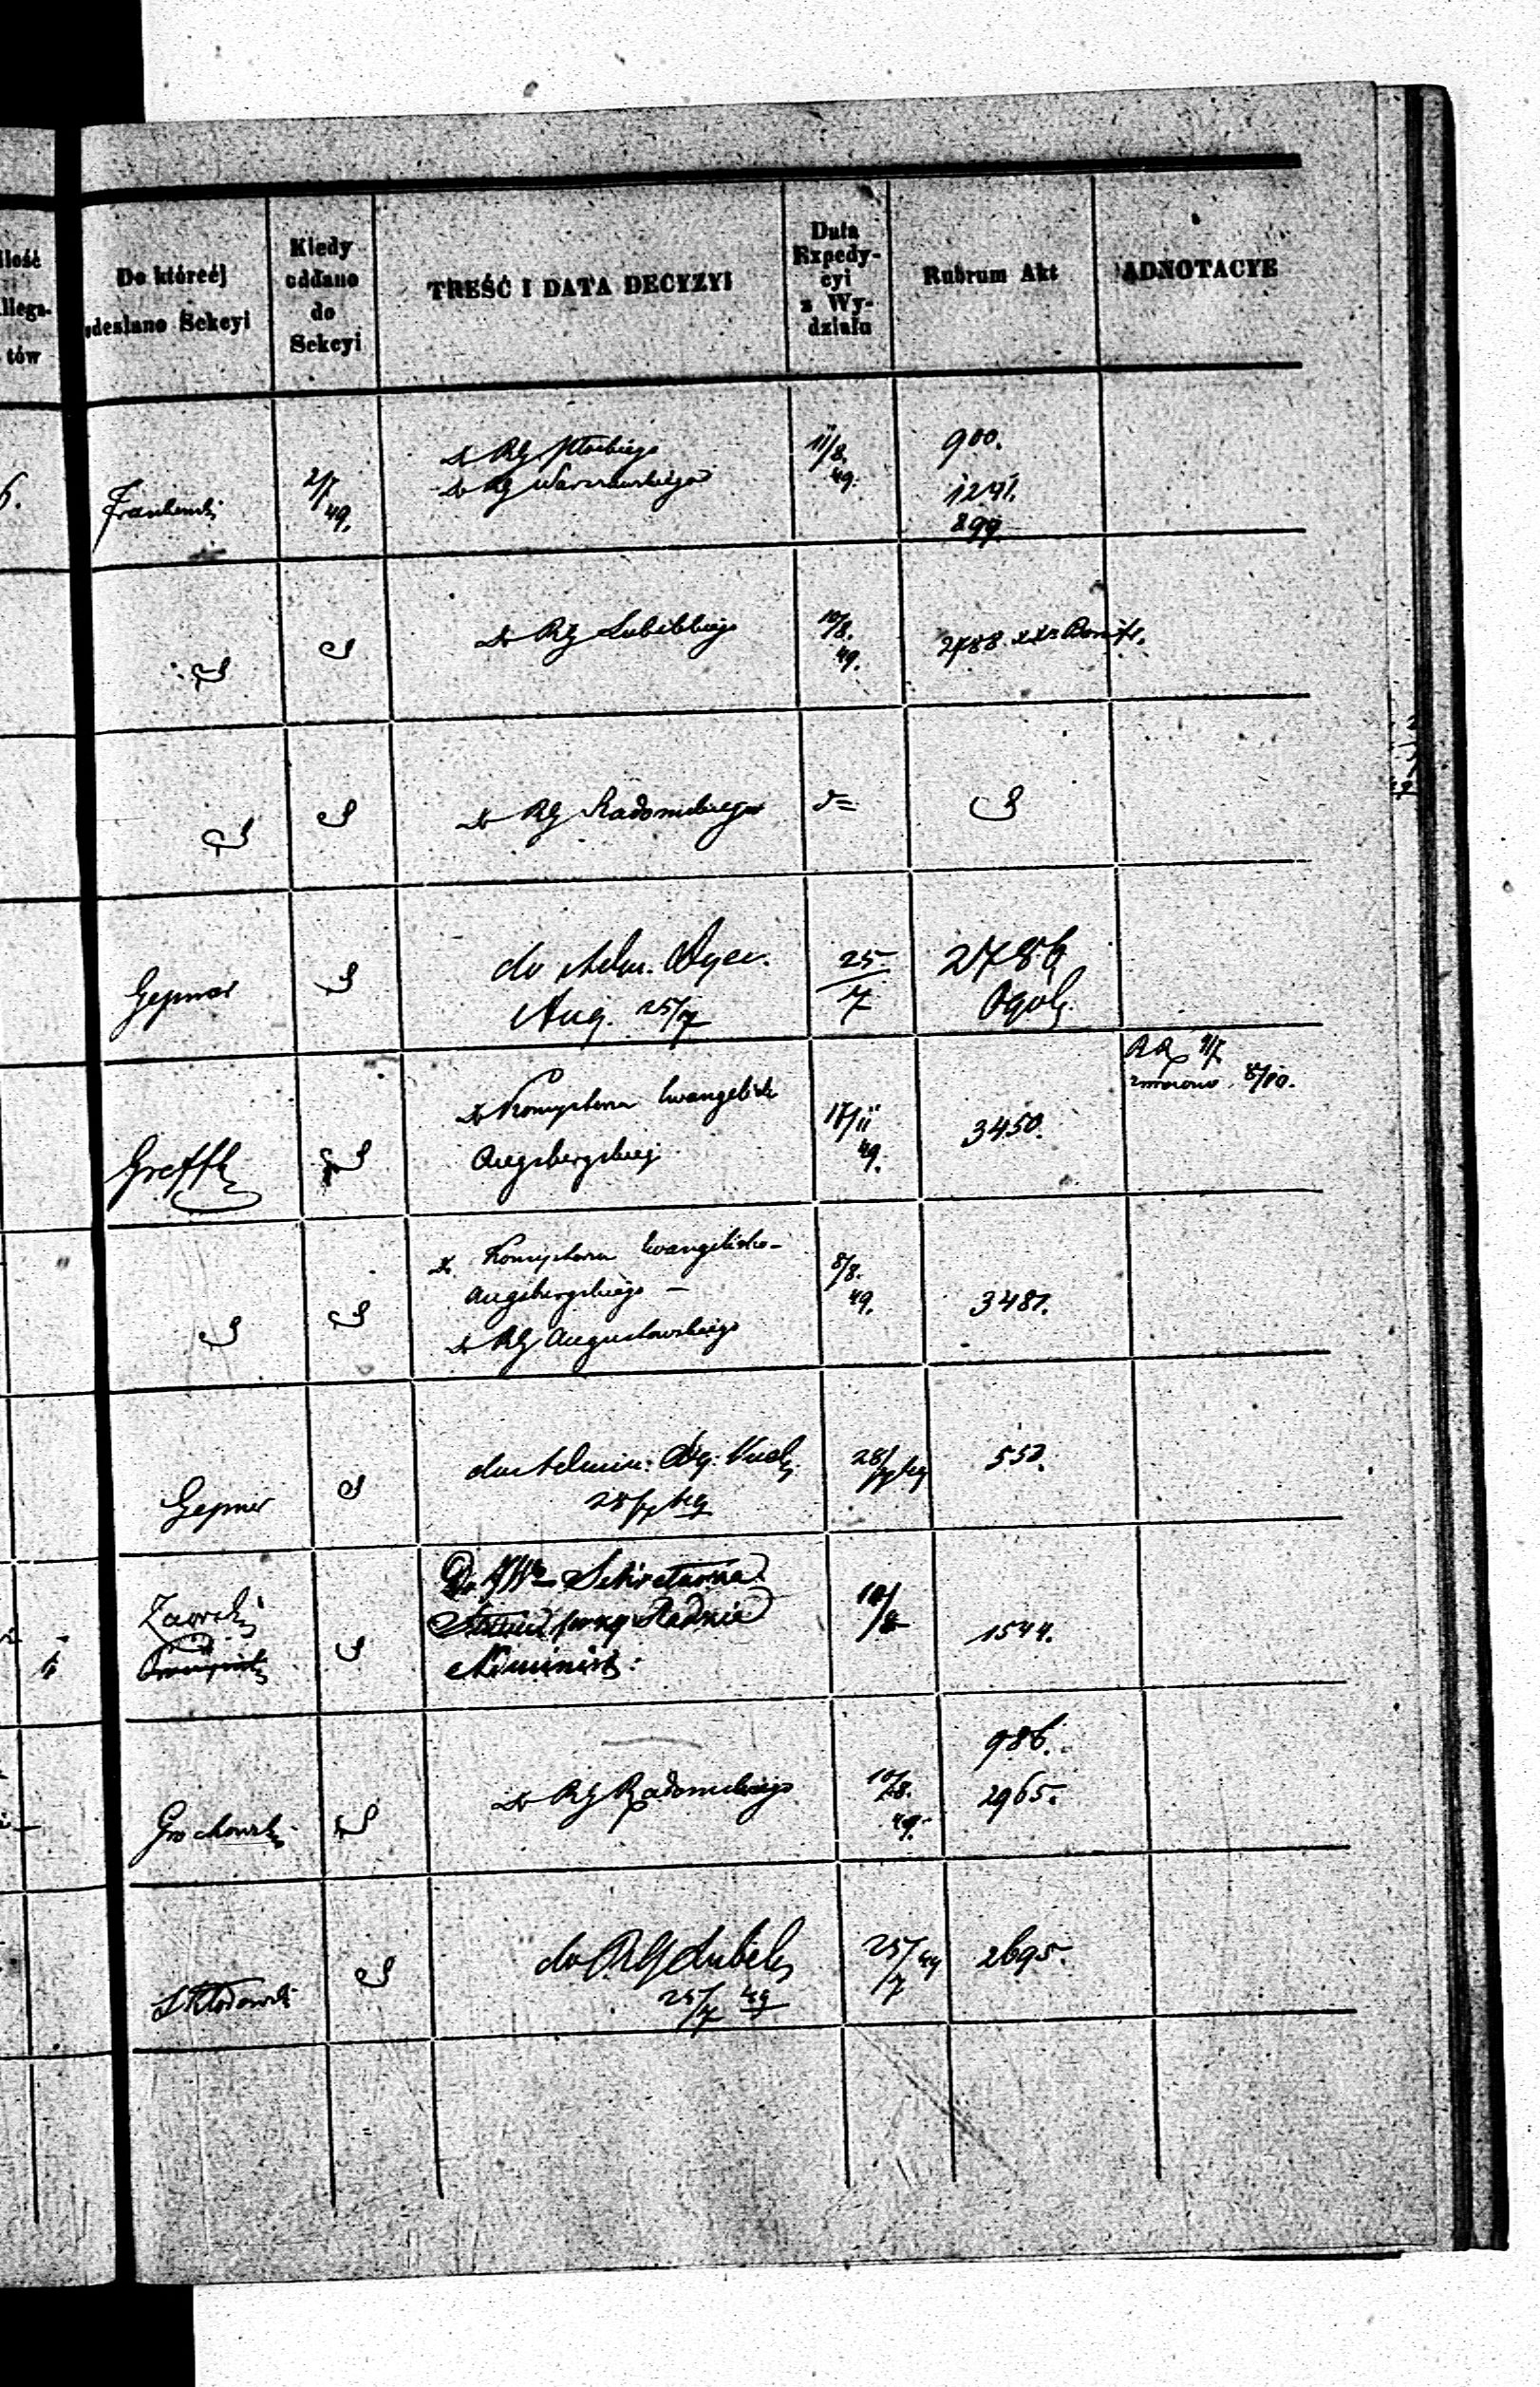 Ilość
i
Allega-
tów
Do któréj
odesłano Sekcyi
Kiedy
oddano
do
Sekcyi
TREŚĆ I DATA DECYZYI
Data
Expedy-
cyi
z Wy-
działu
Rubrum Akt
ADNOTACYE
6.
2/7
49.
Do RG Płockiego
Do RG Warszawskiego
11/8.
49.
900.
1291.
899.
Do RG Lubelskiego
10/8.
49.
2788.
Do RG Radomskiego
Gepner
do Adm. Dyec.
Aug. 25/7
25
7
2786
Ogól.
Greffk
Do Konsystorza Ewangelicko
Augsburgskiej
17/11
49.
3450.
RR 9/7
zwrócono 8/10.
Do Konsystorza Ewangelicko-
Augsburgskiego —
Do RG Augustowskiego
8/8.
49.
3481.
Gepner
do Admin. Dyec.
28/7 49
28/7 49
550.
Zaorski
Do JW Sekretarza
Stanu przy Radzie
Administ:
10/8
1544.
Grochowski
Do RG Radomskiego
10/8.
49.
986.
2965.
Skłodowski
do RG Lubels
25/7 49
25/7 49
2695.